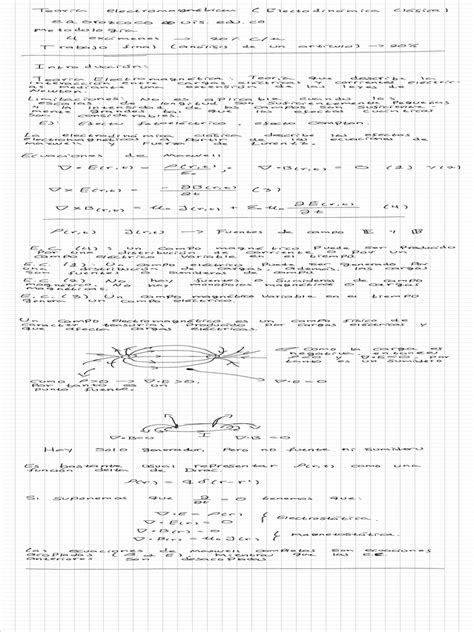 Teoría electromagnética (Electrodinámica Clásica)
Metodología
4 exámenes → 20% c/u
Trabajo final (análisis de un artículo) → 20%
Introducción:
Teoría Electromagnética: Teoría que describe la
interacción entre cargas eléctricas y corrientes eléctri-
cas mediante una extensión de las leyes de
Newton
Limitaciones: No es aplicable cuando las
escalas de longitud son suficientemente pequeñas
son considerables.
Ej: Efecto fotoeléctrico, efecto Compton.
La electrodinámica clásica describe los efectos
electromagnéticos a partir de las ecuaciones de
Maxwell y Fuerza de Lorentz.
Ecuaciones de Maxwell
∇·E(r,t) = ρ(r,t)/ε₀ ∇·B(r,t) = 0 (2)
∇×E(r,t) = -∂B(r,t)/∂t (3)
∇×B(r,t) = μ₀ J(r,t) + ε₀μ₀ ∂E(r,t)/∂t (4)
ρ(r,t) J(r,t) → Fuentes de campo E y B
E.c. (4): Un campo magnético puede ser producido
por una distribución de corriente o por un
campo eléctrico variable en el tiempo
E.c. (1): E puede ser generado por
una distribución de cargas. Además, las cargas
son fuentes o sumideros de campo
E.c. (2) No hay fuentes o sumideros de campo
magnético. No hay monopolos o cargas
magnéticas.
E.c. (3) Un campo magnético variable en el tiempo
genera un campo eléctrico.
Un campo electromagnético es un campo físico de
carácter tensorial producido por cargas eléctricas y
que afecta cargas
Como la carga es
negativa entonces
ρ<0 y ∇·E<0, por
tanto es un sumidero
Como ρ>0 → ∇·E>0, ∇·E=0
Por tanto es un
punto fuente.
∇·B=0 I ∇·B=0
Hay solo generador, pero no fuente ni sumidero
Es bastante usual representar ρ(r,t) como una
función delta de Dirac.
ρ(r,t) = q δ(r-r')
Si suponemos que ∂/∂t = 0 tenemos que:
∇×E(r) = 0 { Electrostática
∇·B(r) = 0
∇×B(r) = μ₀ J(r) { Magnetostática
Las ecuaciones de Maxwell completas son ecuaciones
acopladas (B y E), mientras que las EE
anteriores son desacopladas